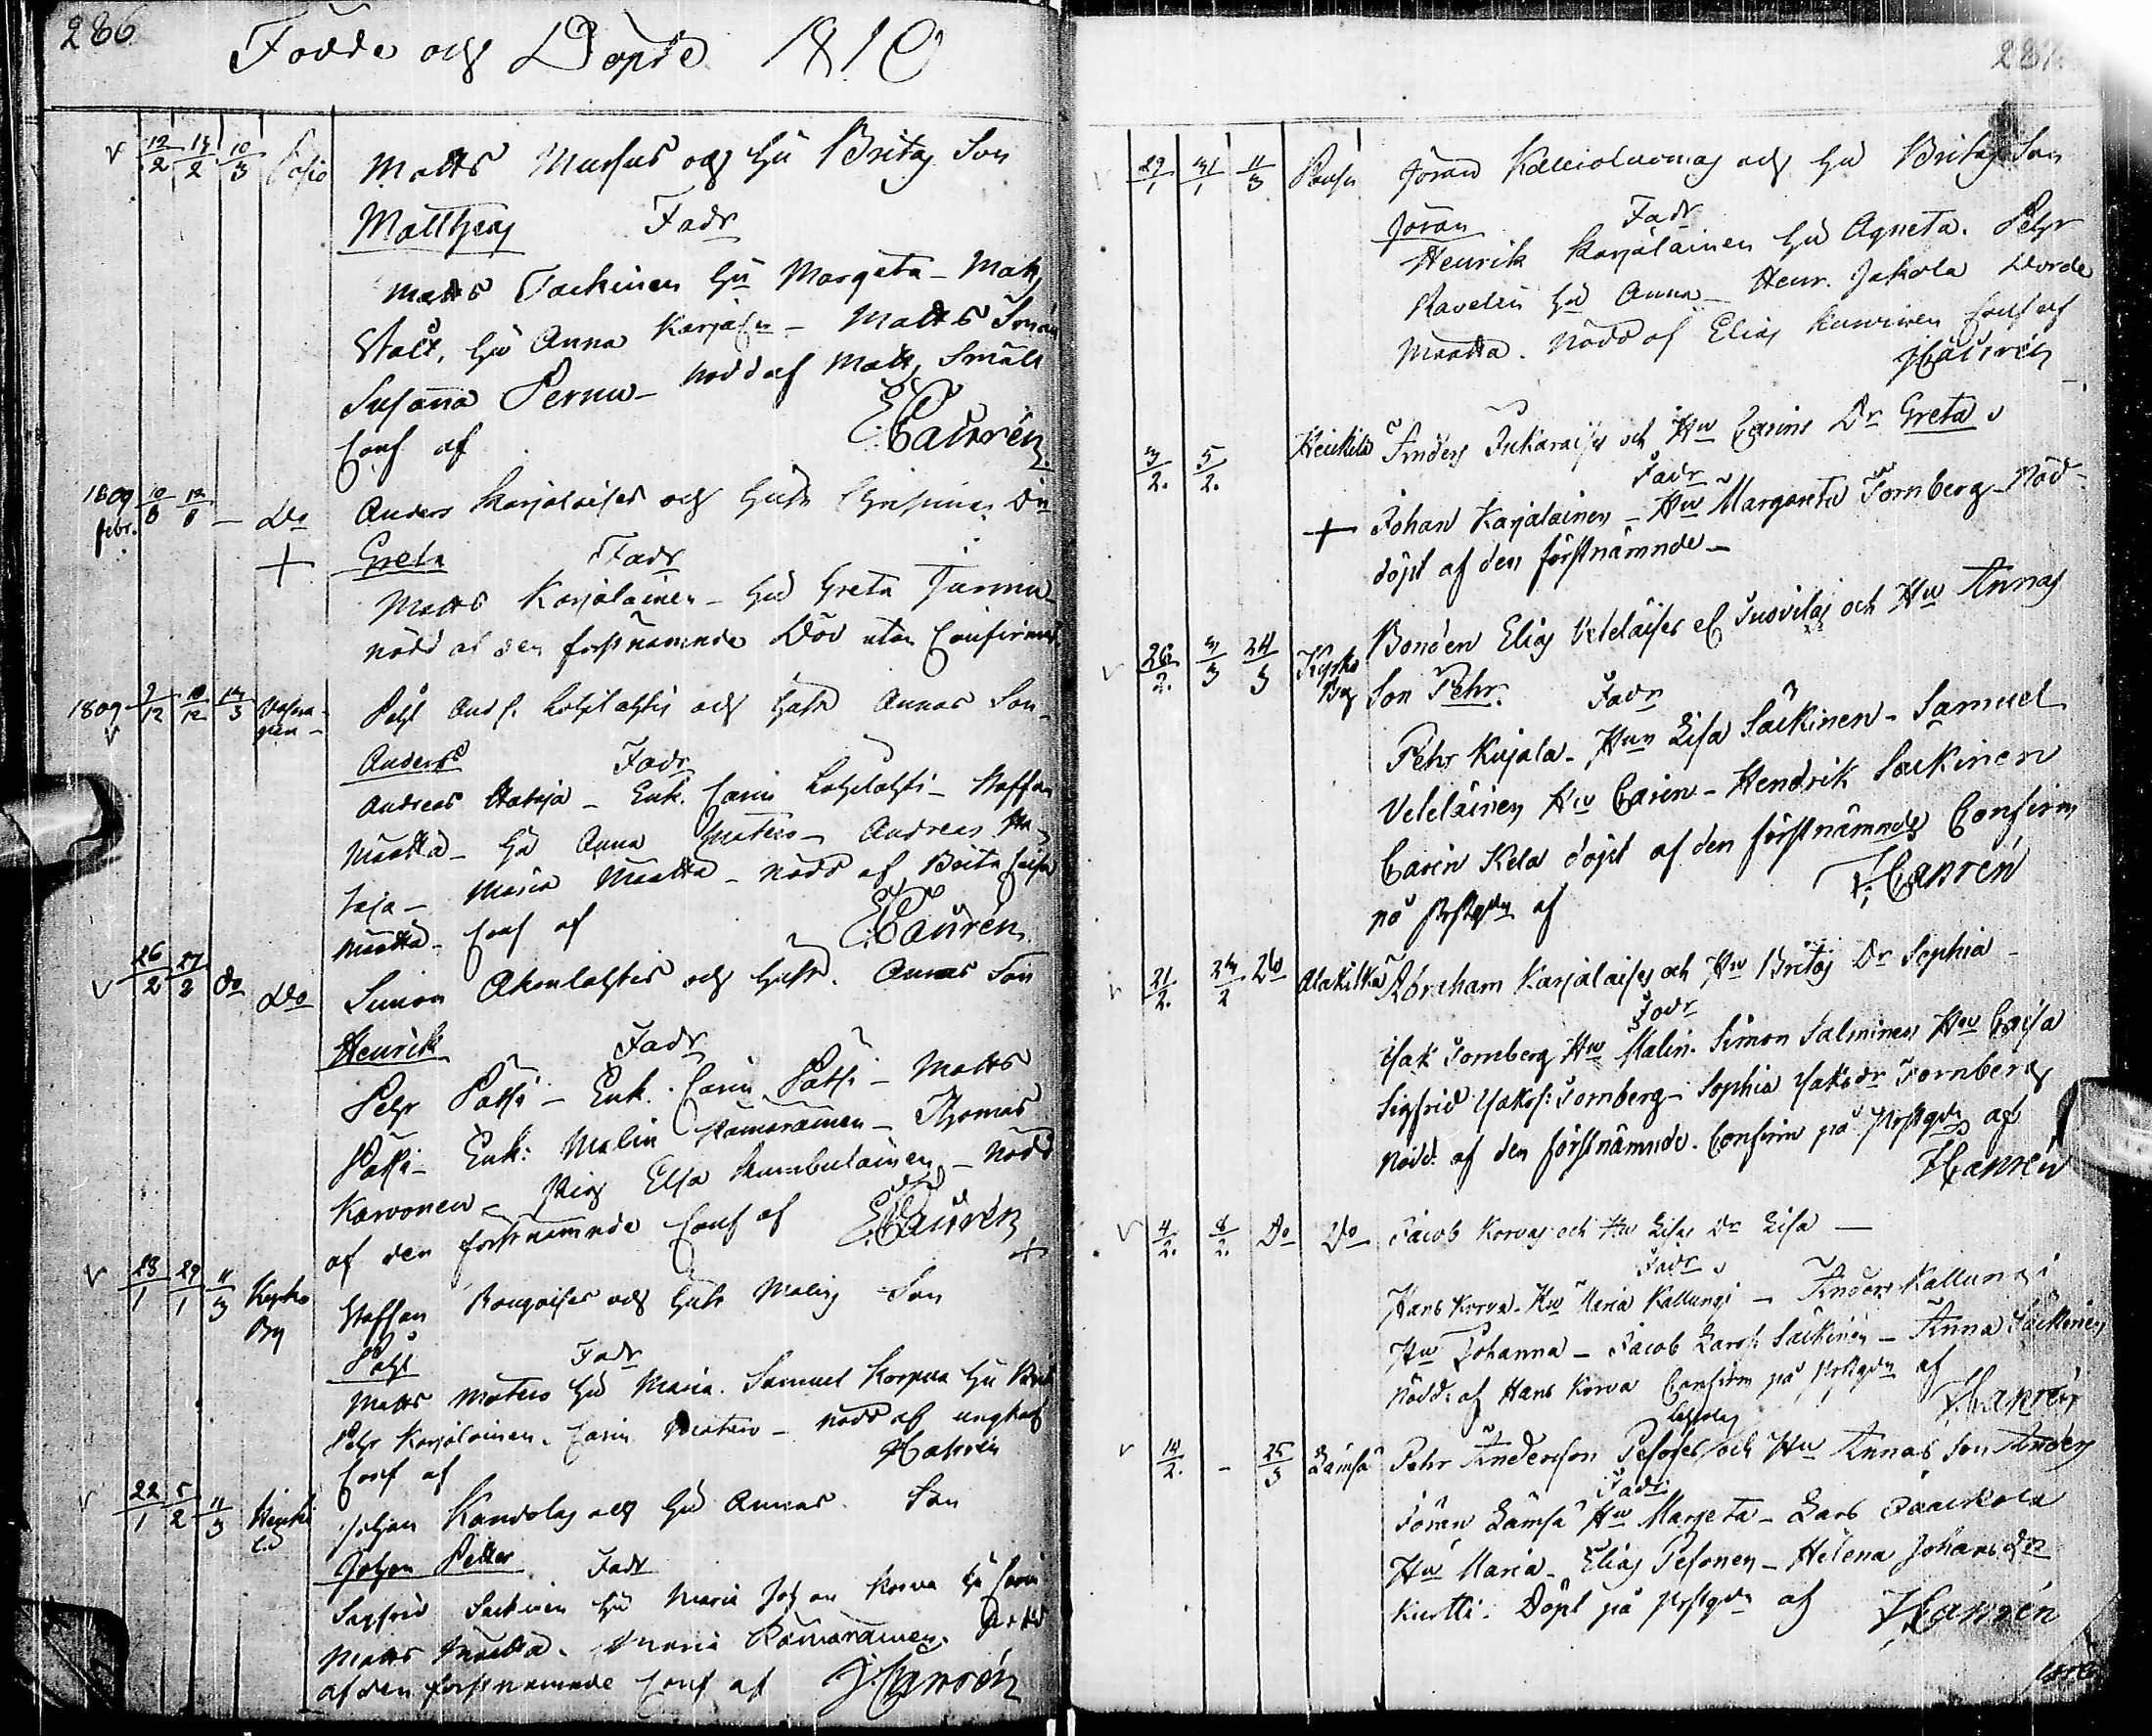 286
Födde och Döpte 1810
12/2 14/2 10/3 Posio Matts Mursus och hu Britas Son
Matthias Fadr
Matts Tackinen hu Margeta - Mats
Stålt, hu Anna Karjal - Matts
Susanna Pernu - nöddöpt af Matts
Conf af Lauren
1809 febr. 10/8 12/8 - Do Anders Karjalaises och hustr Christinas Dr
+ Greta Fadr
Matts Karjalainen - hu Greta
nödd af den förstnämnde död utan Confirmat.
1809 9/12 10/12 13/3 Pehr And. s. Lohilahtis och hustr Annas Son
Anders Fadr
Andreas Hataja - Enk. Carin Lohilahti - Staffan
Määttä - hu Anna Mätero - Andreas Ha-
taja - Maria Määttä - nödd af Brita Caisa
Määttä - Conf af Lauren
26/2 27/2 do Do Simon Akonlahtis och hustr. Annas Son
Henrik Fadr
Pehr Pätsi - Enk. Carin Pätsi - Matts
Pätsi - Enk: Malin Kämäräinen - Thomas
Karvonen - Pig Elsa Kumbulainen - nödd
af den förstnämnde Conf af Lauren
+
28/1 29/1 11/3 Kyrko By Staffan och hustr Malins Son
Påhl Fadr
Matts Mätero hu Maria. Samuel Korpua hu Brit
Pehr Karjalainen. Carin Mätero - nödd af
Conf af Lauren
22/1 5/2 11/3 Heikilä Johan Kandolas och hu Annas Son
Johan Petter Fadr
Sigfrid Säckinen hu Maria Johan Korva hu Carin
Matts Määttä. Maria Kämäräinen. nödd
af den förstnämnde Conf af J Lauren
287
29/1 31/1 11/3 Göran Kallioluomas och hu Britas Son
Göran Fadr
Henrik Karjalainen hu Agneta. Pehr
Ravelin hu Anna - Henr. Jakola
Määttä. Nödd af Elias Conf af
J Lauren
3/2. 5/2. Heikilä Anders Inkaraises och Hu Carins Dr Greta
Fadr
+ Johan Karjalainen - Hu Margareta Tornberg - Nöd-
döpt af den förstnämnde -
26/2. 3/3 24/3 Kyrko By Bonden Elias Veteläises el Suovilas och Hu Annas
Son Pehr. Fadr
Pehr Kujala - Hu Lisa Säckinen - Samuel
Veteläinen Hu Carin - Hendrik Säckinen
Carin Kela döpt af den förstnämnde Confirm
på prstgdn af J. Lauren
21/2. 23/2 26 Alakitka Abraham Karjalaises och Hu Britas Dr Sophia -
Fadr
Isak Tornberg Hu Malin. Simon Salminen Hu Caisa
Sigfrid Isaks s: Tornberg - Sophia Isaks dr Tornberg
nödd. af den förstnämnde. Confirm på Prstgdn af
J Lauren
4/2. 8/2. Do Do Jacob Korvas och Hu Lisas Dr Lisa -
Fadr
Hans Korva - Hu Maria Kallungi - Anders Kallungi
Hu Johanna - Jacob Lars s. Säckinen - Anna Säckinen
Nödd: af Hans Korva Confirm på Prstgdn af
J Lauren
14/2. - 25/3 Lämsä Pehr Andersson Pesoses och Hu Annas Son Anders
Fadr
Göran Lämsä Hu Margeta - Lars
Hu Maria - Elias Pesonen - Helena Johans dr
Kurtti. Döpt på Prstgdn af J Lauren